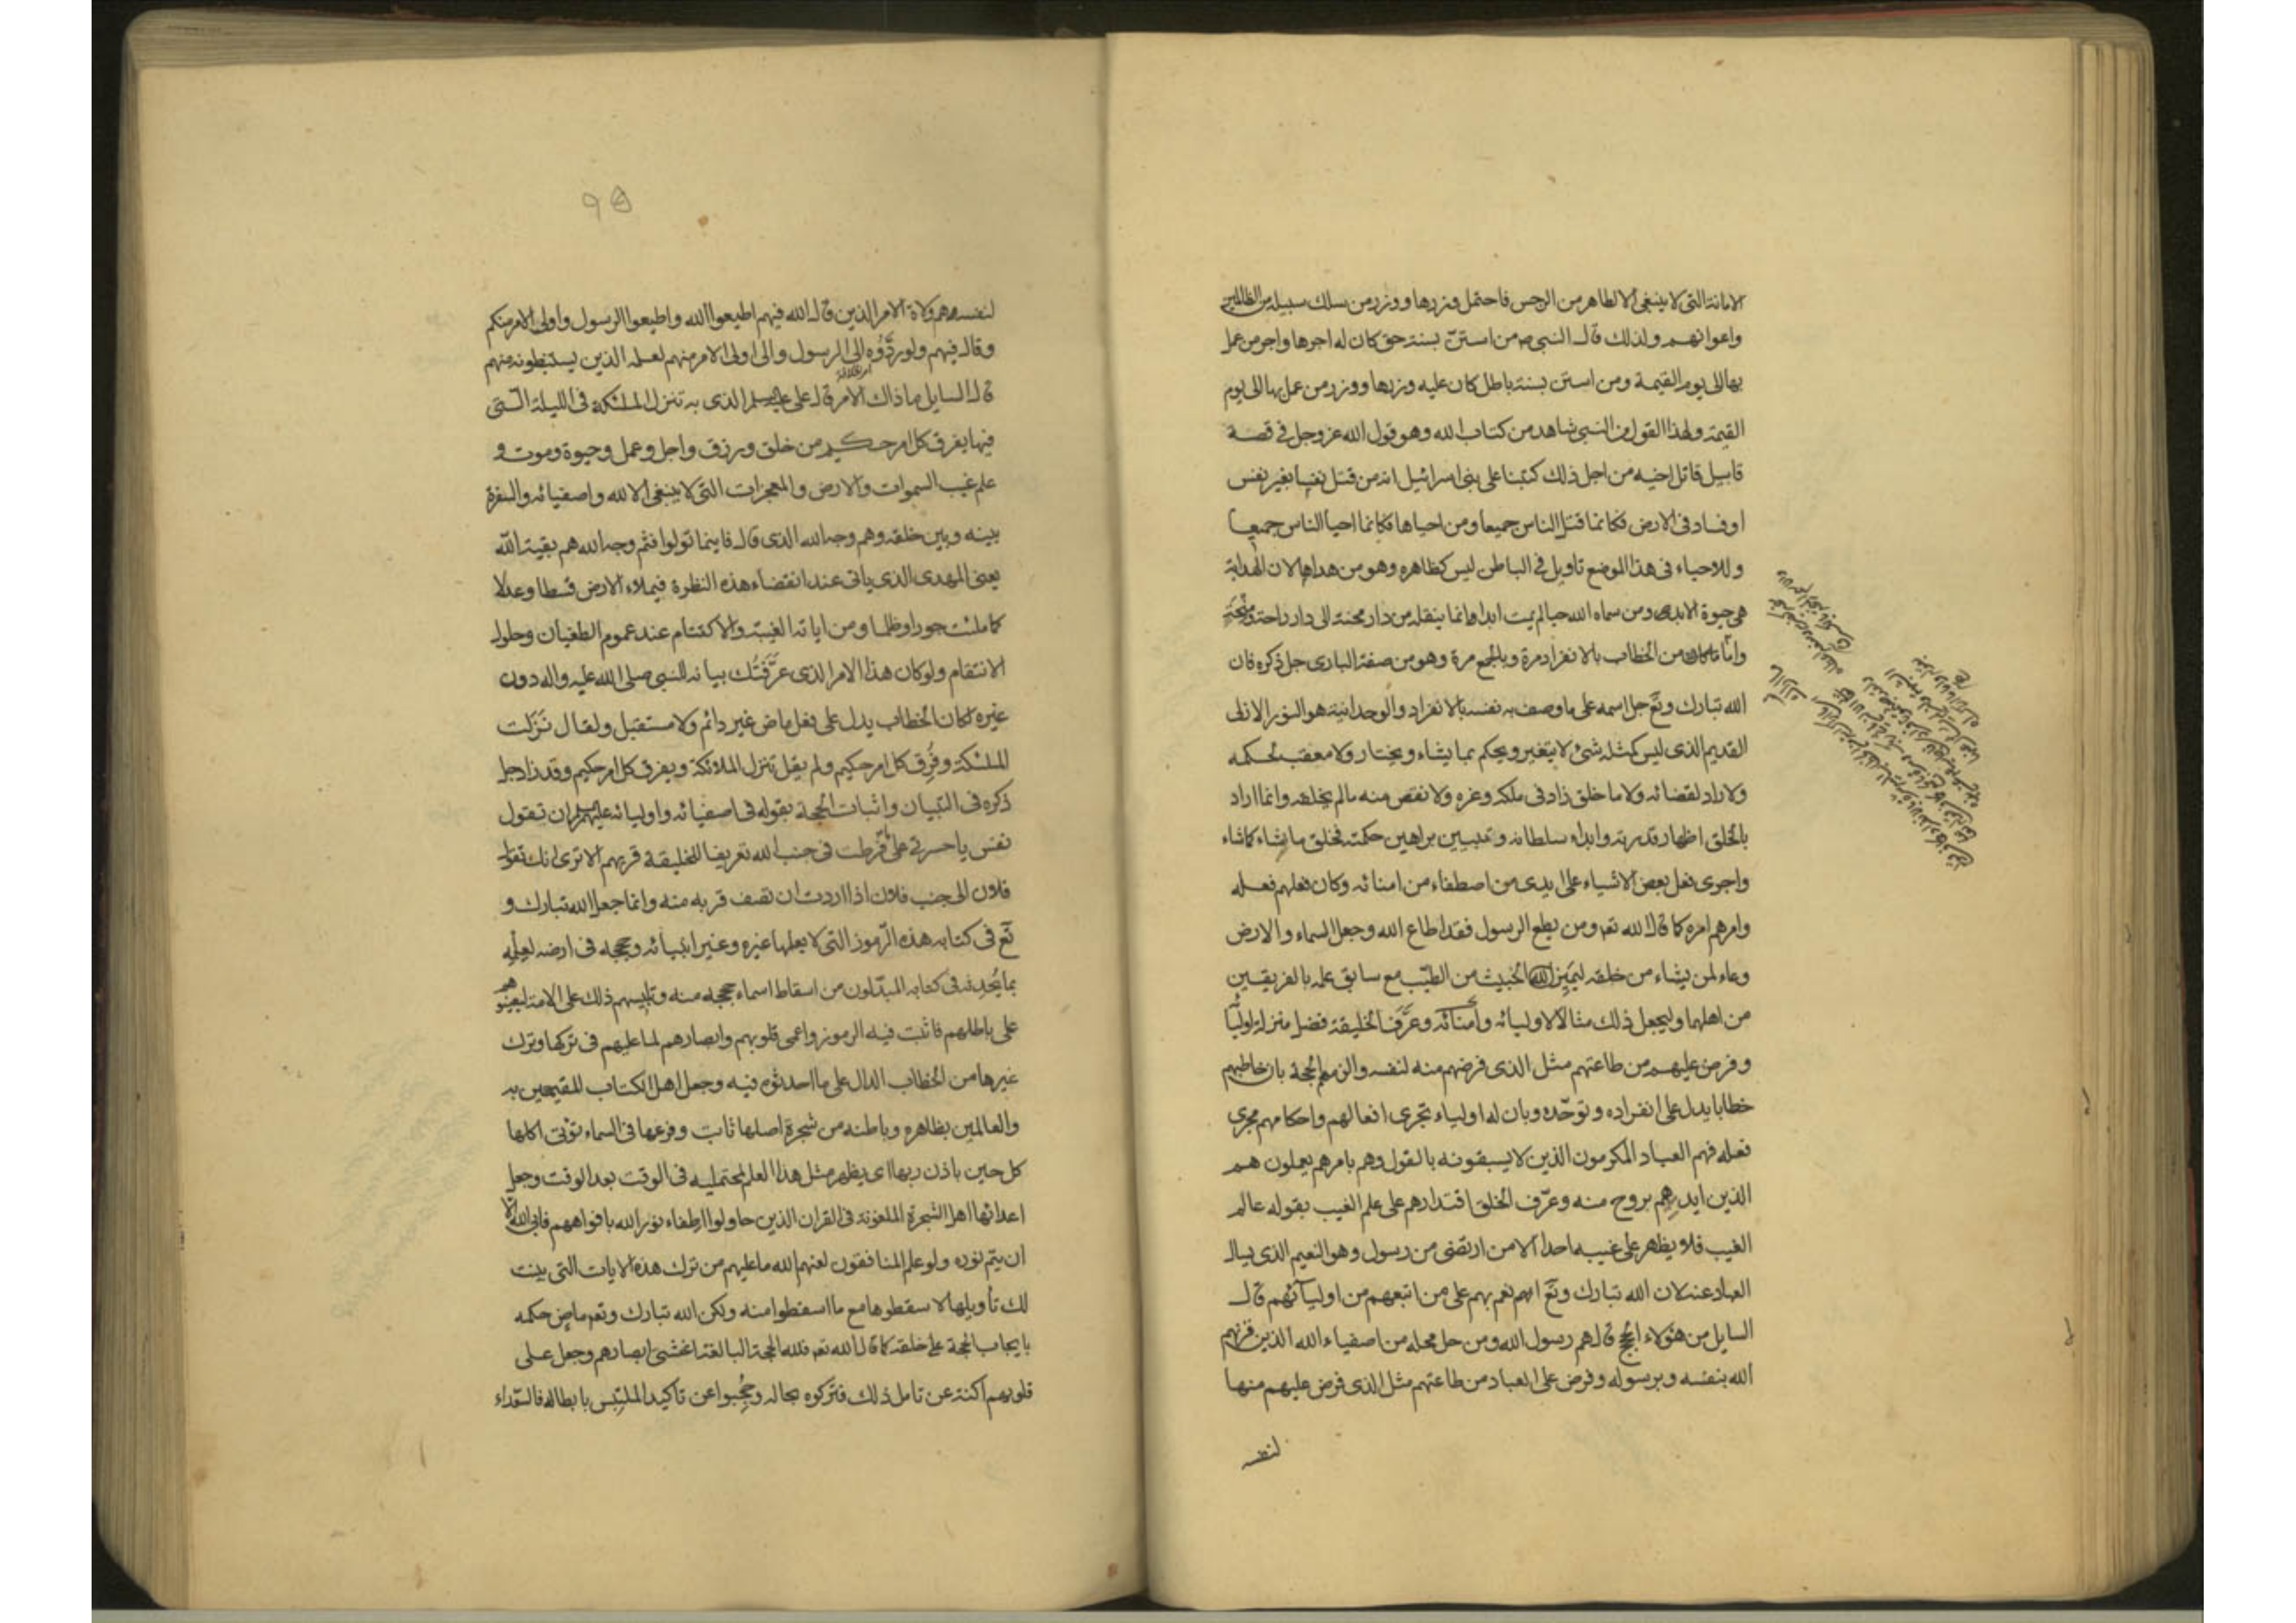 الامانة التى لا ينبغى الا لطاهر من الرجس فاحتمل وزرها ووزر من سلك سبيله من الظالمين
واعوانهم ولذلك قال النبى ص من استنّ بسنة حق كان له اجرها واجر من عمل
بها الى يوم القيمة ومن استن بسنة باطل كان عليه وزرها ووزر من عمل بها الى يوم
القيمة ولهذا القول من النبى شاهد من كتاب الله وهو قول الله عز وجل فى قصة
قابيل قاتل اخيه من اجل ذلك كتبنا على بنى اسرائيل انه من قتل نفسا بغير نفس
او فساد فى الارض فكانما قتل الناس جميعا ومن احياها فكانما احيا الناس جميعا
وللاحياء فى هذا الموضع تاويل فى الباطن ليس كظاهره وهو من هداها لان الهداية
هى حيوة الابد ومن سماه الله حيا لم يمت ابدا وانما ينقله من دار محنة الى دار راحة ومنحة
وامّا ما كان من الخطاب بالانفراد مرة وبالجمع مرة وهو من صفة البارى جل ذكره فان
الله تبارك وتع جل اسمه على ما وصف به نفسه بالانفراد والوحدانية هو النور الازلى
القديم الذى ليس كمثله شئ لا يتغير ويحكم بما يشاء ويختار ولا معقب لحكمه
ولا راد لقضائه ولا ما خلق زاد فى ملكه وعزه ولا نقص منه ما لم يخلقه وانما اراد
بالخلق اظهار قدرته وابداء سلطانه وتبيين براهين حكمته فخلق ما شاء كما شاء
واجرى فعل بعض الاشياء على ايدى من اصطفاء من امنائه وكان فعلهم فعله
وامرهم امره كما قال الله تعه ومن يطع الرسول فقد اطاع الله وجعل السماء والارض
وعاء لمن يشاء من خلقه ليميز الله الخبيث من الطيّب مع سابق علمه بالفريقين
من اهلها وليجعل ذلك مثالا لاوليائه وأمنائه وعرّف الخليقة فضل منزلة اوليائه
وفرض عليهم من طاعتهم مثل الذى فرضهم منه لنفسه والزمهم الحجة بان خاطبهم
خطابا يدل على انفراده وتوحّده وبان له اولياء تجرى افعالهم واحكامهم مجرى
فعله فهم العباد المكرمون الذين لا يسبقونه بالقول وهم بامرهم يعملون هم
الذين ايدهم بروح منه وعرّف الخلق اقتدارهم على علم الغيب بقوله عالم
الغيب فلا يظهر على غيبه احدا الا من ارتضى من رسول وهو النعيم الذى يسال
العباد عنه لان الله تبارك وتع انهم نعم بهم على من اتبعهم من اوليائهم قال
السايل من هؤلاء الحجج قال هم رسول الله ومن حل محله من اصفياء الله الذين قرنهم
الله بنفسه وبرسوله وفرض على العباد من طاعتهم مثل الذى فرض عليهم منها
لنفسه
لنفسه وهم ولاة الامر الذين قال الله فيهم اطيعوا الله واطيعوا الرسول واولى الامر منكم
وقال فيهم ولو ردّوه الى الرسول والى اولى الامر منهم لعلمه الذين يستنبطونه منهم
قال السايل ما ذاك الامر قال على عليه السلم الذى به تنزل الملئكة فى الليلة التى
فيها يفرق كل امر حكيم من خلق ورزق واجل وعمل وحيوة وموت و
علم غيب السموات والارض والمعجزات التى لا ينبغى الا لله واصفيائه والسفرة
بينه وبين خلقه وهم وجه الله الذى قال فاينما تولوا فثم وجه الله هم بقية الله
يعنى المهدى الذى ياتى عند انقضاء هذه النظرة فيملاء الارض قسطا وعدلا
كما ملئت جورا وظلما ومن اياته الغيبة والاكتتام عند عموم الطغيان وحلول
الانتقام ولو كان هذا الامر الذى عرّفتك بيانه للنبى صلى الله عليه واله دون
غيره لكان الخطاب يدل على فعل ماض غير دائم ولا مستقبل ولقال نزلت
الملئكة وفرق كل امر حكيم ولم يقل تنزل الملائكة ويفرق كل امر حكيم وقد زاد جل
ذكره فى التبيان واثبات الحجة بقوله فى اصفيائه واوليائه عليهم السلم ان تقول
نفس يا حسرتى على ما فرطت فى جنب الله تعريفا للخليقة قربهم الا ترى انك تقول
فلان الى جنب فلان اذا اردت ان تصف قربه منه وانما جعل الله تبارك و
تع فى كتابه هذه الرّموز التى لا يعلمها غيره وغير انبيائه وحججه فى ارضه لعلمه
بما يحدثه فى كتابه المبدّلون من اسقاط اسماء حججه منه وتلبيسهم ذلك على الامة ليعينوهم
على باطلهم فاثبت فيه الرموز واعمى قلوبهم وابصارهم لما عليهم فى تركها وترك
غيرها من الخطاب الدال على ما احدثوه فيه وجعل اهل الكتاب المقيمين به
والعالمين بظاهره وباطنه من شجرة اصلها ثابت وفرعها فى السماء تؤتى اكلها
كل حين باذن ربها اى يظهر مثل هذا العلم لمحتمليه فى الوقت بعد الوقت وجعل
اعدائها اهل الشجرة الملعونة فى القران الذين حاولوا اطفاء نور الله بافواههم فابى الله الا
ان يتم نوره ولو علم المنافقون لعنهم الله ما عليهم من ترك هذه الايات التى بينت
لك تأويلها لاسقطوها مع ما اسقطوا منه ولكن الله تبارك وتعه ماض حكمه
بايجاب الحجة على خلقه كما قال الله تعه فلله الحجة البالغة اغشى ابصارهم وجعل على
قلوبهم اكنة عن تامل ذلك فتركوه بحاله وحجبوا عن تاكيد الملتبس بابطاله فالسعداء